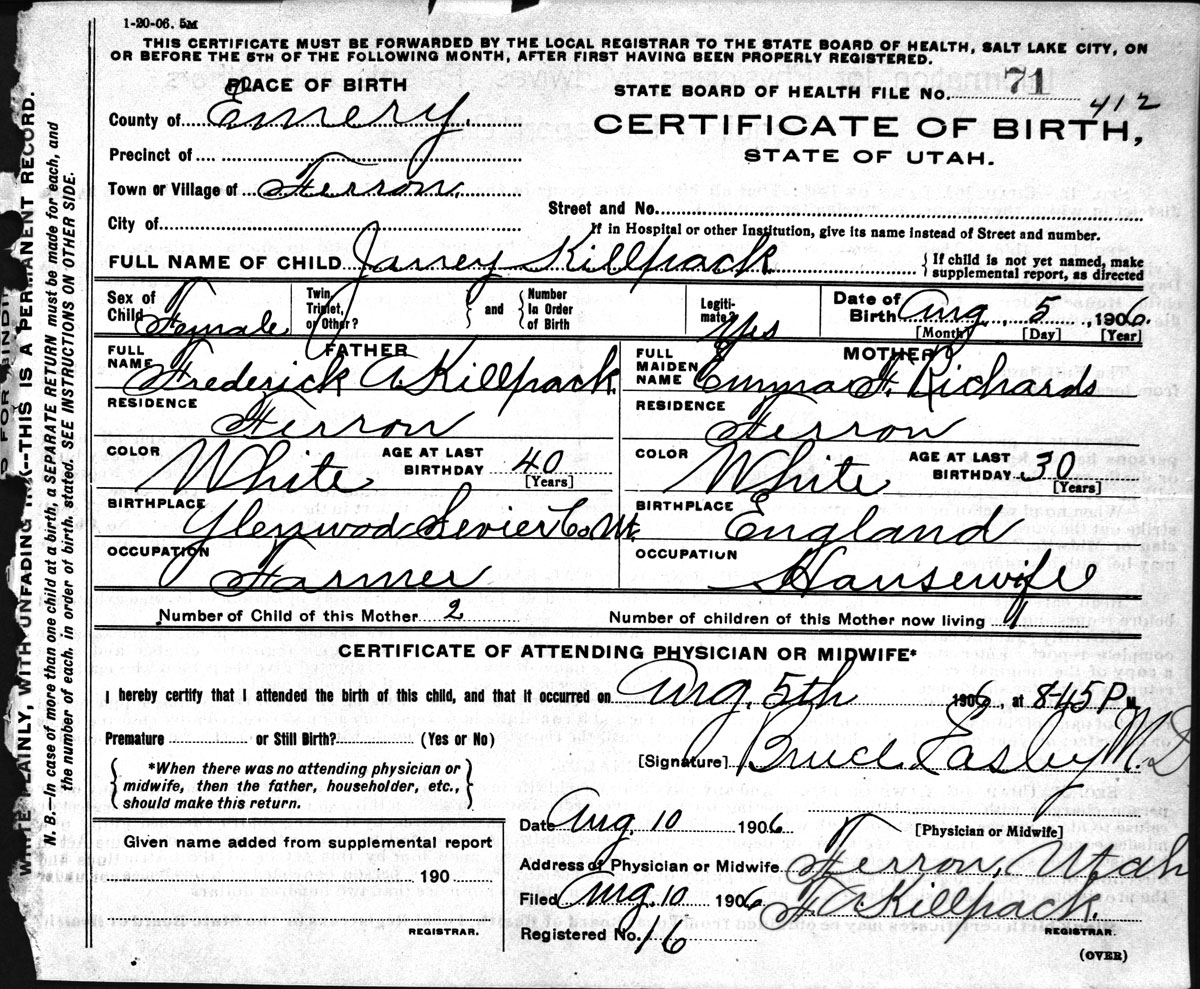 1-20-06. 5M
THIS CERTIFICATE MUST BE FORWARDED BY THE LOCAL REGISTRAR TO THE STATE BOARD OF HEALTH, SALT LAKE CITY, ON
OR BEFORE THE 5TH OF THE FOLLOWING MONTH, AFTER FIRST HAVING BEEN PROPERLY REGISTERED.
PLACE OF BIRTH
STATE BOARD OF HEALTH FILE No. 71
412
County of Emery.
CERTIFICATE OF BIRTH,
STATE OF UTAH.
Precinct of
Town or Village of Ferron.
Street and No.
City of
If in Hospital or other Institution, give its name instead of Street and number.
FULL NAME OF CHILD Killpack
If child is not yet named, make
supplemental report, as directed
Sex of Child Female
Twin, Triplet, or Other?
and
Number in Order of Birth
Legiti-mate? Yes
Date of Birth Aug. 5, 1906.
[Month] [Day] [Year]
FATHER
FULL NAME Frederick A. Killpack
MOTHER
FULL MAIDEN NAME Emma F. Richards
RESIDENCE Ferron
RESIDENCE Ferron
COLOR White
AGE AT LAST BIRTHDAY 40
[Years]
COLOR White
AGE AT LAST BIRTHDAY 30
[Years]
BIRTHPLACE Glenwood Sevier Co. Ut.
BIRTHPLACE England
OCCUPATION Farmer
OCCUPATION Hansewife
Number of Child of this Mother 2
Number of children of this Mother now living 1
CERTIFICATE OF ATTENDING PHYSICIAN OR MIDWIFE*
I hereby certify that I attended the birth of this child, and that it occurred on Aug. 5th 1906, at 8-45 P M.
Premature or Still Birth? (Yes or No)
*When there was no attending physician or
midwife, then the father, householder, etc.,
should make this return.
[Signature] Bruce Easley M.D
Date Aug. 10 1906
[Physician or Midwife]
Given name added from supplemental report
190
REGISTRAR.
Address of Physician or Midwife Ferron, Utah
Filed Aug. 10 1906
F A Killpack.
REGISTRAR.
Registered No. 16
(OVER)
WRITE PLAINLY, WITH UNFADING INK--THIS IS A PERMANENT RECORD.
N. B.--In case of more than one child at a birth, a SEPARATE RETURN must be made for each, and
the number of each, in order of birth, stated. SEE INSTRUCTIONS ON OTHER SIDE.